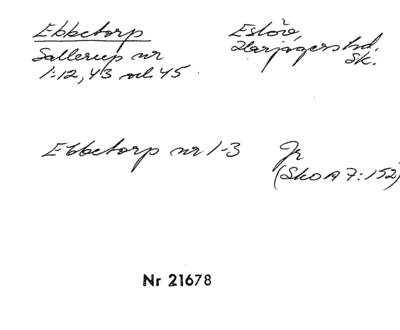 Ebbetorp
Sallerup nr
1:12, 43 och 45
Eslöv,
Harjagers hd.
Sk.
Ebbetorp nr 1-3
Jr
(SkoA 7:152)
Nr 21678